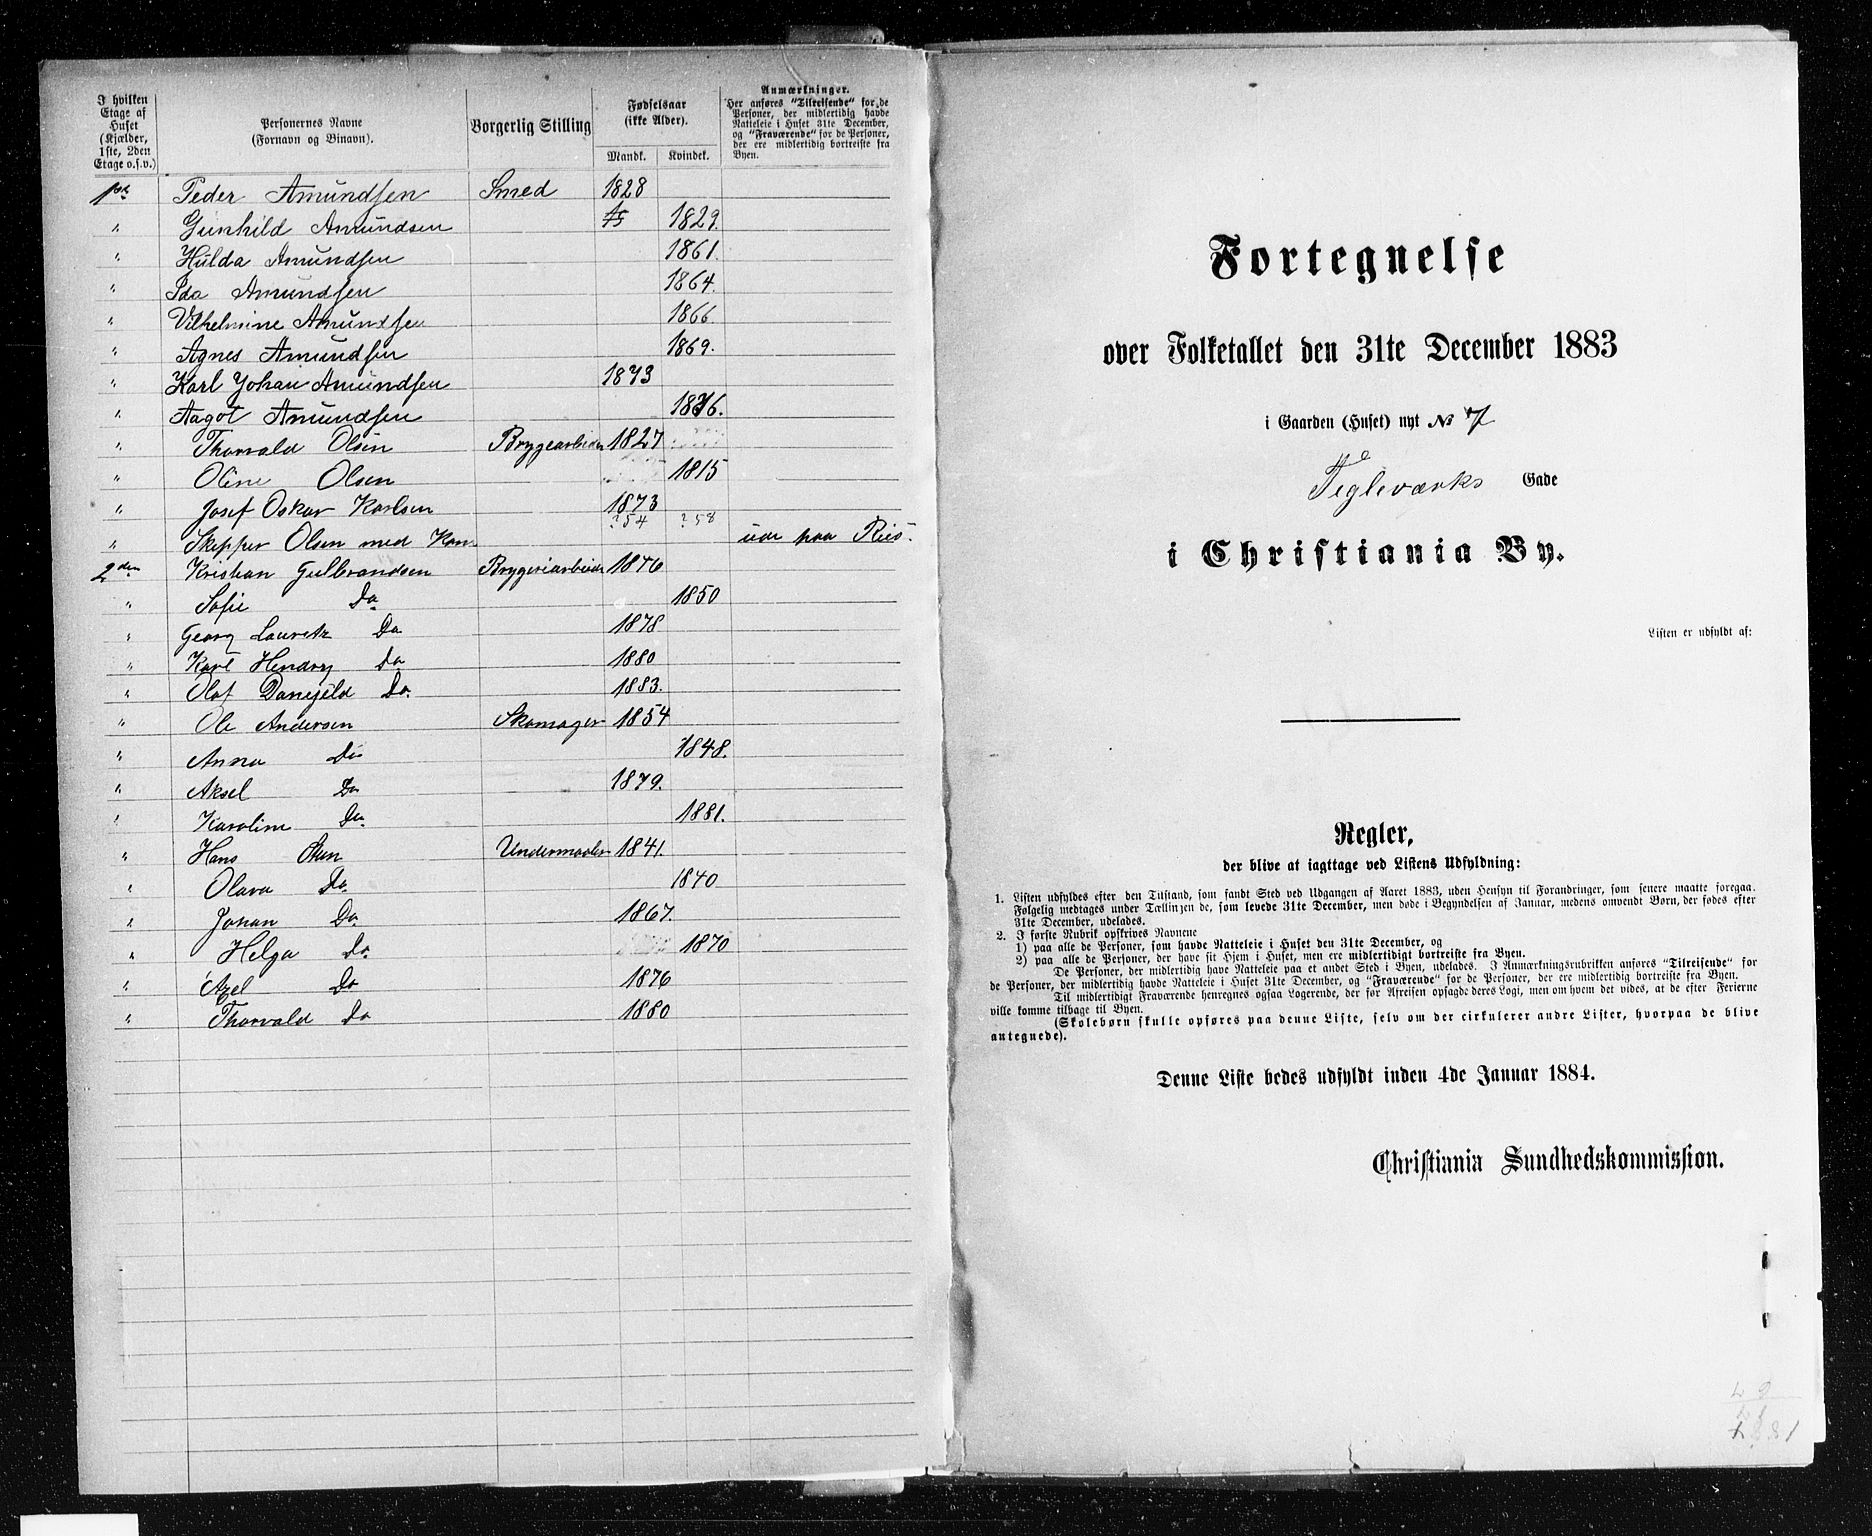 I hvilken Etage af Huset (Kjælder, 1ste, 2den Etage o.s.v.)
Personernes Navne (Fornavn og Binavn).
Borgerlig Stilling
Fødselsaar (ikke Alder).
Mandk. Kvindek.
Anmærkninger.
Her anføres "Tilreisende" for de
Personer, der midlertidig havde
Natteleie i Huset 31te December,
og "Fraværende" for de Personer,
der ere midlertidig bortreiste fra
Byen.
Peder Amundsen Smed 1828
" Gunhild Amundsen 1829.
" Hulda Amundsen 1861.
" Ida Amundsen 1864.
" Vilhelmine Amundsen 1866
" Agnes Amundsen 1869.
" Karl Johan Amundsen 1873
" Aagot Amundsen 1876.
" Thorvald Olsen Bryggearbeider 1827
" Oline Olsen 1815
" Josef Oskar Karlsen 1873
?54 ?58
" Skipper Olsen med Kon. paa
2den Kristian Gulbrandsen Bryggeriarbeider 1876
" Sofie Do 1850
" Georg Lauretz Do 1878
" Karl Hendry Do 1880
" Olaf Do. 1883.
" Ole Andersen Skomager 1854
" Anna Do 1848.
" Aksel Do 1879.
" Karoline Do. 1881.
" Hans Undermaaler 1841.
" Olava Do. 1840
" Johan Do 1867.
" Helga Do 1870
" Axel Do 1876
" Thorvald Do 1880
Fortegnelse
over Folketallet den 31te December 1883
i Gaarden (Huset) nyt No 7
Teglværks Gade
i Christiania By.
Listen er udfyldt af:
Regler,
der blive at iagttage ved Listens Udfyldning:
1. Listen udfyldes efter den Tilstand, som fandt Sted ved Udgangen af Aaret 1883, uden Hensyn til Forandringer, som senere maatte foregaa.
Følgelig medtages under Tællingen de, som levede 31te December, men døde i Begyndelsen af Januar, medens omvendt Børn, der fødes efter
31te December, udelades.
2. I første Rubrik opskrives Navnene
1) paa alle de Personer, som havde Natteleie i Huset den 31te December, og
2) paa alle de Personer, der have sit Hjem i Huset, men ere midlertidigt bortreiste fra Byen.
De Personer, der midlertidig have Natteleie paa et andet Sted i Byen, udelades. I Anmærkningsrubrikken anføres "Tilreisende" for
de Personer, der midlertidig havde Natteleie i Huset 31te December, og "Fraværende" for de Personer, der ere midlertidig bortreiste fra Byen.
Til midlertidigt Fraværende henregnes ogsaa Logerende, der før Afreisen opsagde deres Logi, men om hvem det vides, at de efter Ferierne
ville komme tilbage til Byen.
(Skolebørn skulle opføres paa denne Liste, selv om der cirkulerer andre Lister, hvorpaa de blive
antegnede).
Denne Liste bedes udfyldt inden 4de Januar 1884.
Christiania Sundhedskommission.